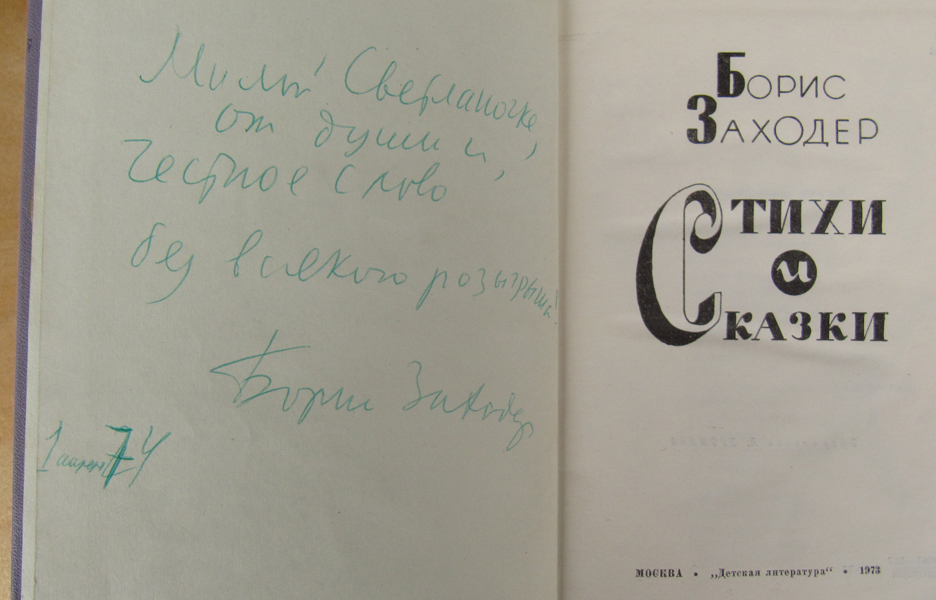 Милой Светланочке,
от души и,
честное слово
без всякого розыгрыша!
Борис Заходер
1 апреля 74
БОРИС
ЗАХОДЕР
СТИХИ
и
СКАЗКИ
МОСКВА • „Детская литература“ • 1973